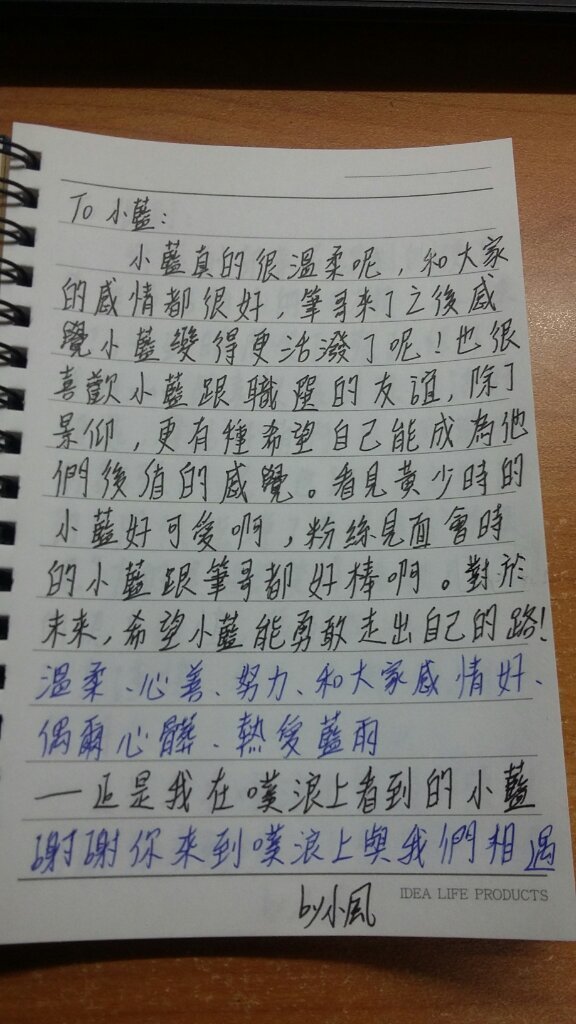 To 小藍:
小藍真的很溫柔呢，和大家
的感情都很好，筆哥來了之後感
覺小藍變得更活潑了呢！也很
喜歡小藍跟職選的友誼，除了
景仰，更有種希望自己能成為他
們後盾的感覺。看見黃少時的
小藍好可愛啊，粉絲見面會時
的小藍跟筆哥都好棒啊。對於
未來，希望小藍能勇敢走出自己的路！
溫柔、心善、努力、和大家感情好、
偶爾心髒、熱愛藍雨
——正是我在噗浪上看到的小藍
謝謝你來到噗浪上與我們相遇
by小風
IDEA LIFE PRODUCTS